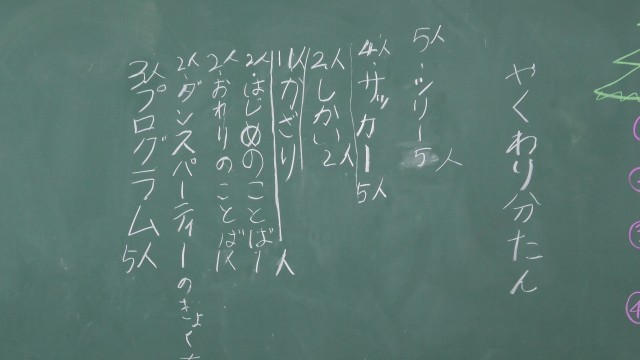 やくわり分たん
5人・ツリー5人
4人・サッカー5人
2人しかい2人
11人かざり 人
2人・はじめのことば1
2人・おわりのことば1人
2人・ダンスパーティーのきょく
3人プログラム5人
③
④